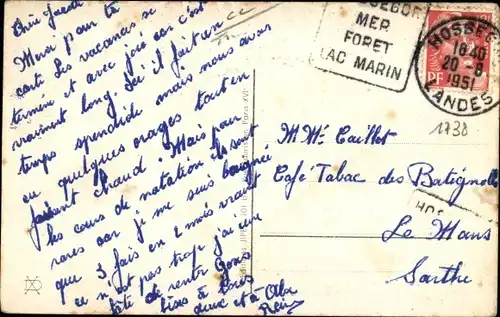 Merci pour ta
carte. Les vacances se
et avec joie car c'est
vraiment long. Ici il fait un
temps splendide mais nous avons
eu quelques orages tout en
faisant chaud. Mais pour
les cours de natation ils sont
rares car je me suis baignée
que 3 fois en 2 mois vraiment
ce n'est pas trop j'ai une
de rentrer.
bises à tous
deux et à
MER
FORET
LAC MARIN
HOSSEGOR
18 40
20 -8
1951
LANDES
RF
1738
M Me Caillot
Café Tabac des Batignolles
Le Mans
Sarthe
HOS